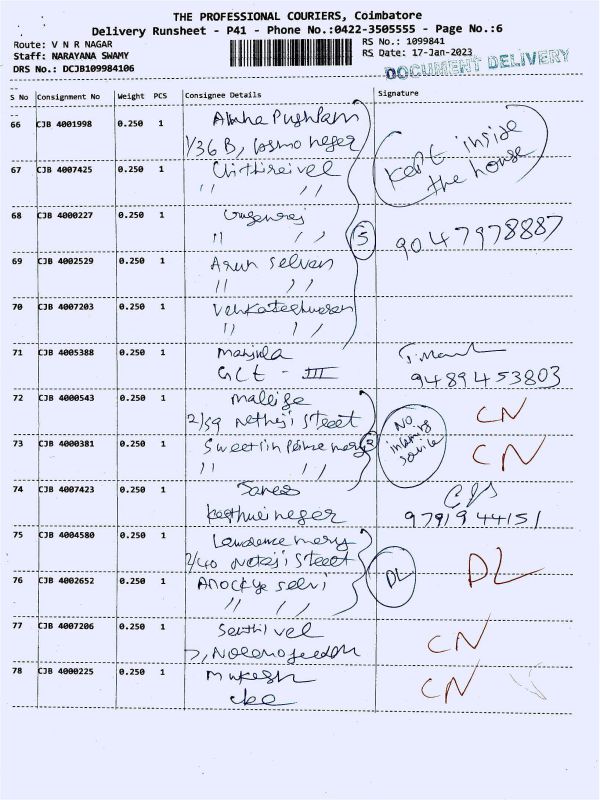 THE PROFESSIONAL COURIERS, Coimbatore
Delivery Runsheet - P41 - Phone No.:0422-3505555 - Page No.:6
Route: V N R NAGAR
Staff: NARAYANA SWAMY
DRS No.: DCJB109984106
RS No.: 1099841
RS Date: 17-Jan-2023
DOCUMENT DELIVERY
S No Consignment No Weight PCS Consignee Details Signature
66 CJB 4001998 0.250 1 Pushpam
1/36 B, cosmo neger
Kept inside
the house
67 CJB 4007425 0.250 1 Chithireivel
" "
68 CJB 4000227 0.250 1
" " 5
9047978887
69 CJB 4002529 0.250 1 Arun Selvan
" "
70 CJB 4007203 0.250 1 Venkateshwaran
" "
71 CJB 4005388 0.250 1 Manjula
GCT - III
9489453803
72 CJB 4000543 0.250 1 Mallige
2/59 Netheji street
CN
73 CJB 4000381 0.250 1 mary
" "
No
incoming
service
CN
74 CJB 4007423 0.250 1
9791944151
75 CJB 4004580 0.250 1 Lawrence mary
2/40 Netaji street
76 CJB 4002652 0.250 1 Arockya selvi
" "
DL
DL
77 CJB 4007206 0.250 1 Senthil vel
7,
CN
78 CJB 4000225 0.250 1 Mukesh
CN